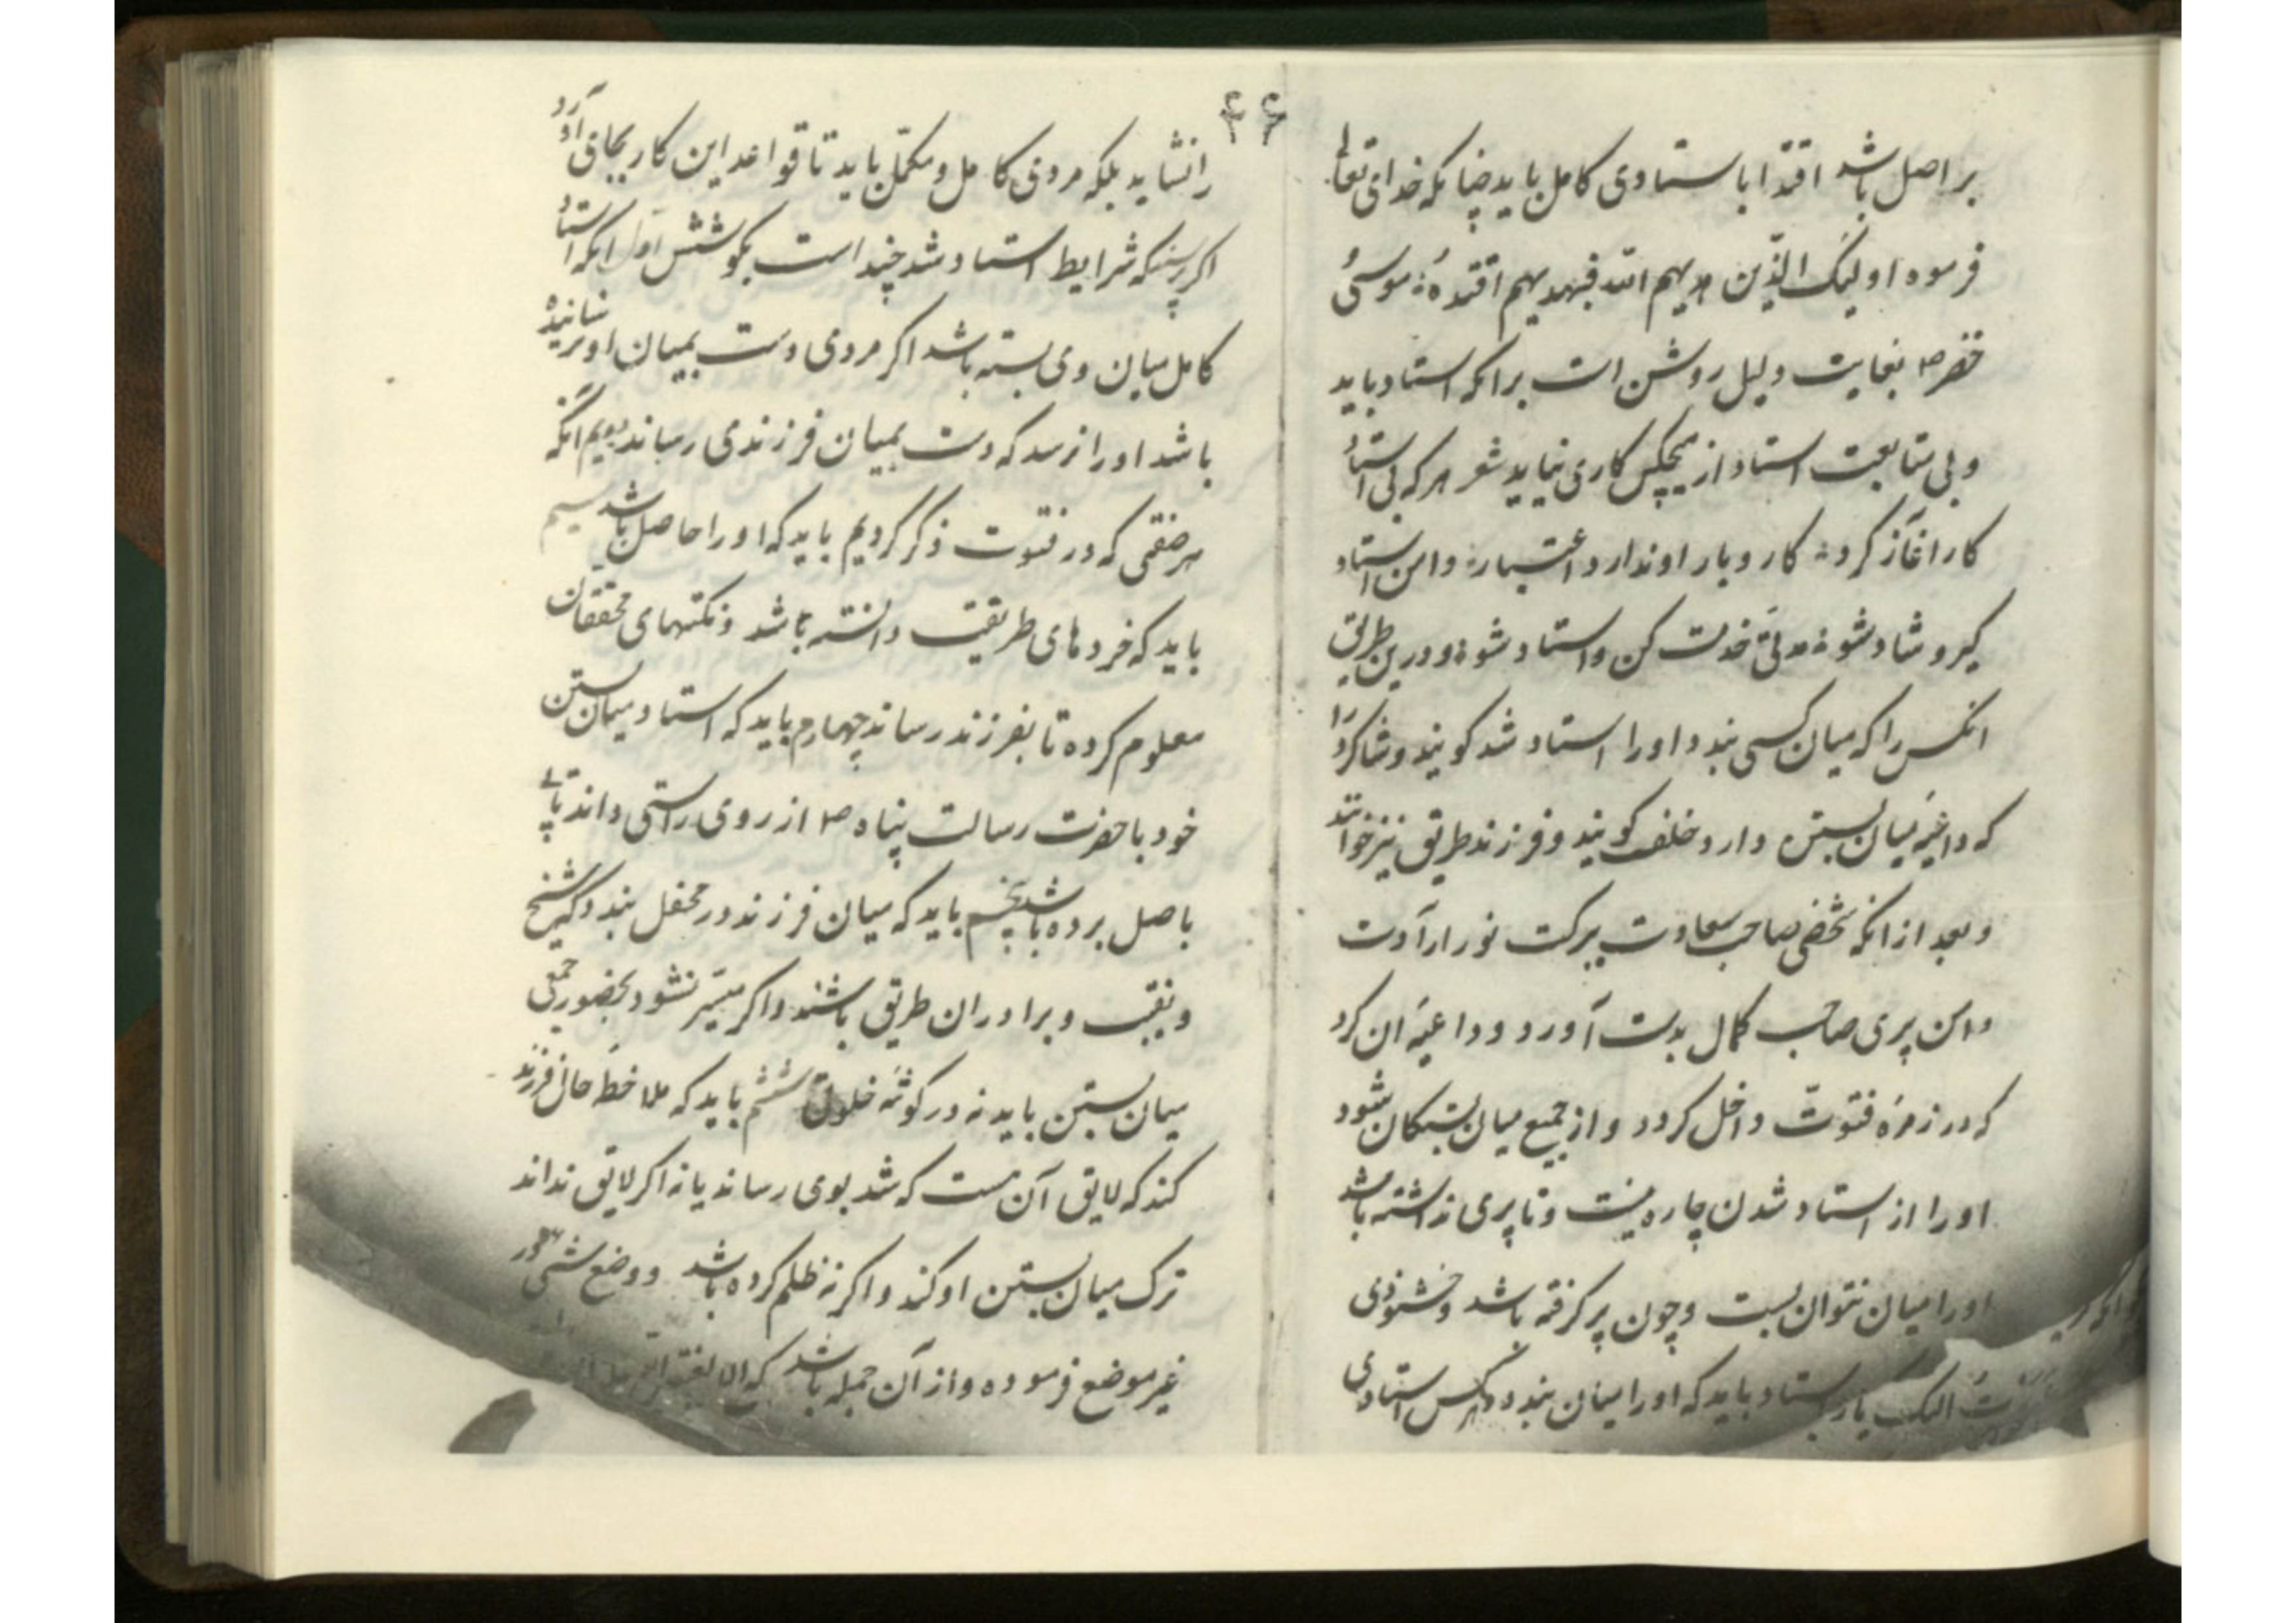 ۴۶
بر اصل باشد اقتدا باستادی کامل باید چنانکه خدای تعالی
فرموده اولئک الذین هدیهم الله فبهدیهم اقتده موسی
خضر ۴ بغایت دلیل روشن است برانکه استاد باید
و بی متابعت استاد از هیچکس کاری نیاید شعر هر که بی استاد
کار اغاز کرد کار و بار او ندارد اعتبار دامن استاد
گیر و شاد شو مدتی خدمت کن و استاد شو و درین طریق
انکس را که میان کسی بندد او را استاد شد کویند و شاکرد را
که داعیه میان بستن دارد خلف کویند و فرزند طریق نیز خوانند
و بعد از انکه شخصی صاحب سعادت ببرکت نور ارادت
دامن پیری صاحب کمال بدست آورد و داعیه ان کرد
که در زمره فتوت داخل کردد و از جمیع میان بستکان شود
او را از استاد شدن چاره نیست و تا پیری نداشته باشد
او را میان نتوان بست و چون پیر کرفته باشد و خشنودی
استاد باید که او را میان بندد و هر کس استادی
را نشاید بلکه مردی کامل و مکمل باید تا قواعد این کار بجای آورد
اکر پرسند که شرایط استاد شد چند است بکو شش اول انکه استاد
کامل میان وی بسته باشد اکر مردی دست بمیان او نرسانیده
باشد او را نرسد که دست بمیان فرزندی رساند دویم انکه
هر صفتی که در فتوت ذکر کردیم باید که او را حاصل باشد سیم
باید که خرده های طریقت دانسته باشد و نکتهای محققان
معلوم کرده تا بفرزند رساند چهارم باید که استاد میان بستن
خود با حضرت رسالت پناه ۴ از روی راستی داند تا پی
باصل برده باشد پنجم باید که میان فرزند در محفل بندد که شیخ
و نقیب و برادران طریق باشند و اکر میسر نشود بحضور جمعی
میان بستن باید نه در کوشه خلوت ششم باید که ملاحظه حال فرزند
کند که لایق آن هست که شد بوی رساند یا نه اکر لایق نداند
ترک میان بستن او کند و اکر نه ظلم کرده باشد و وضع شیی در
غیر موضع فرموده و از آن جمله باشد که